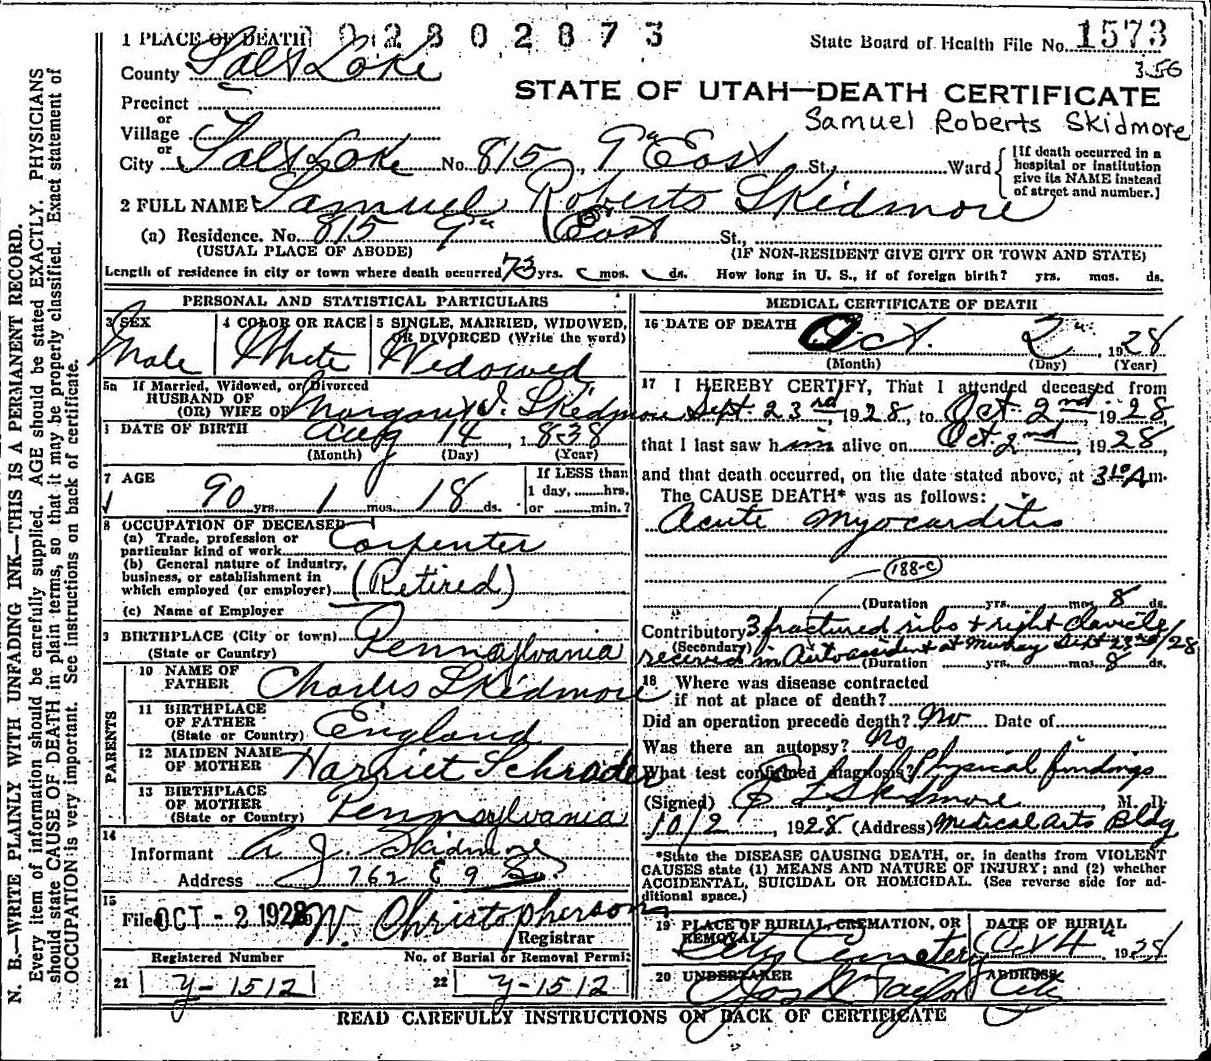 1 PLACE OF DEATH 02802873
State Board of Health File No. 1573
County Salt Lake
356
STATE OF UTAH—DEATH CERTIFICATE
Precinct
or
Village
Samuel Roberts Skidmore
or
City Salt Lake No. 815, 9th East St., Ward
[If death occurred in a hospital or institution give its NAME instead of street and number.]
2 FULL NAME Samuel Roberts Skidmore
(a) Residence. No. 815 9th East St.,
(USUAL PLACE OF ABODE) (IF NON-RESIDENT GIVE CITY OR TOWN AND STATE)
Length of residence in city or town where death occurred 73 yrs. mos. ds. How long in U. S., if of foreign birth? yrs. mos. ds.
PERSONAL AND STATISTICAL PARTICULARS
3 SEX
Male
4 COLOR OR RACE
White
5 SINGLE, MARRIED, WIDOWED,
OR DIVORCED (Write the word)
Widowed
5a If Married, Widowed, or Divorced
HUSBAND OF
(OR) WIFE OF Margaret J. Skidmore
DATE OF BIRTH Aug 14, 1838
(Month) (Day) (Year)
7 AGE
90 yrs. 1 mos. 18 ds.
If LESS than
1 day, hrs.
or min.?
8 OCCUPATION OF DECEASED
(a) Trade, profession or
particular kind of work Carpenter
(b) General nature of industry,
business, or establishment in
which employed (or employer) (Retired)
(c) Name of Employer
9 BIRTHPLACE (City or town)
(State or Country) Pennsylvania
PARENTS
10 NAME OF
FATHER Charles Skidmore
11 BIRTHPLACE
OF FATHER
(State or Country) England
12 MAIDEN NAME
OF MOTHER Harriet Schrader
13 BIRTHPLACE
OF MOTHER
(State or Country) Pennsylvania
14
Informant A. J. Skidmore
Address 762 E 9 So.
15
Filed OCT - 2 1928 W. Christopherson
Registrar
Registered Number No. of Burial or Removal Permit
21 Y-1512 22 Y-1512
MEDICAL CERTIFICATE OF DEATH
16 DATE OF DEATH
Oct. 2, 1928
(Month) (Day) (Year)
17 I HEREBY CERTIFY, That I attended deceased from
Sept. 23rd, 1928, to Oct. 2nd, 1928,
that I last saw him alive on Oct. 2nd, 1928,
and that death occurred, on the date stated above, at 3:10 A m.
The CAUSE DEATH* was as follows:
Acute Myocarditis
188-c
(Duration yrs. mos. 8 ds.
Contributory 3 fractured ribs + right clavicle
(Secondary) received in Auto accident at Murray Sept 23rd/28
(Duration yrs. mos. 8 ds.
18 Where was disease contracted
if not at place of death?
Did an operation precede death? No Date of
Was there an autopsy? No
What test confirmed diagnosis? Physical findings
(Signed) Skidmore, M. D.
10/2, 1928 (Address) Medical Arts Bldg
*State the DISEASE CAUSING DEATH, or, in deaths from VIOLENT
CAUSES state (1) MEANS AND NATURE OF INJURY; and (2) whether
ACCIDENTAL, SUICIDAL OR HOMICIDAL. (See reverse side for ad-
ditional space.)
19 PLACE OF BURIAL, CREMATION, OR
REMOVAL
City Cemetery
DATE OF BURIAL
Oct 4 1928
20 UNDERTAKER
Taylor
ADDRESS
City
READ CAREFULLY INSTRUCTIONS ON BACK OF CERTIFICATE
N. B.—WRITE PLAINLY WITH UNFADING INK—THIS IS A PERMANENT RECORD.
Every item of information should be carefully supplied. AGE should be stated EXACTLY. PHYSICIANS
should state CAUSE OF DEATH in plain terms, so that it may be properly classified. Exact statement of
OCCUPATION is very important. See instructions on back of certificate.